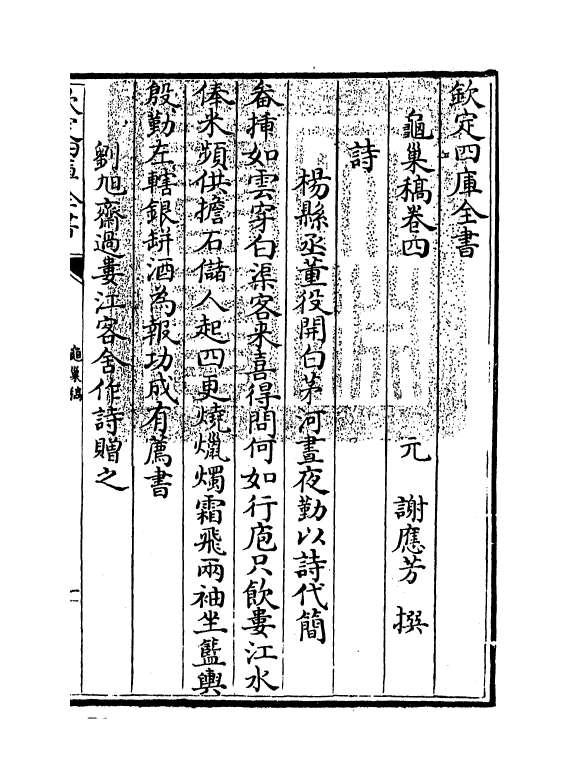 欽定四庫全書
龜巢稿卷四　元　謝應芳　撰
詩
楊縣丞董役開白茅河晝夜勤以詩代簡
畚挿如雲穿白渠客来喜得問何如行庖只飲婁江水
俸米頻供擔石儲人起四更燒爉燭霜飛兩袖坐籃輿
殷勤左轄銀缾酒為報功成有薦書
劉旭齋過婁江客舍作詩贈之
欽定四庫全書　龜巢稿　一